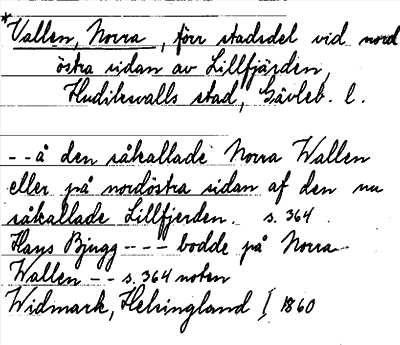 *Vallen, Norra, förr stadsdel vid nord
östra sidan av Lillfjärden,
Hudiksvalls stad, Gävleb. l.
- - å den såkallade Norra Wallen
eller på nordöstra sidan af den nu
såkallade Lillfjerden. s. 364.
Hans Bjugg - - - bodde på Norra
Wallen - - s. 364 noten
Widmark, Helsingland I 1860